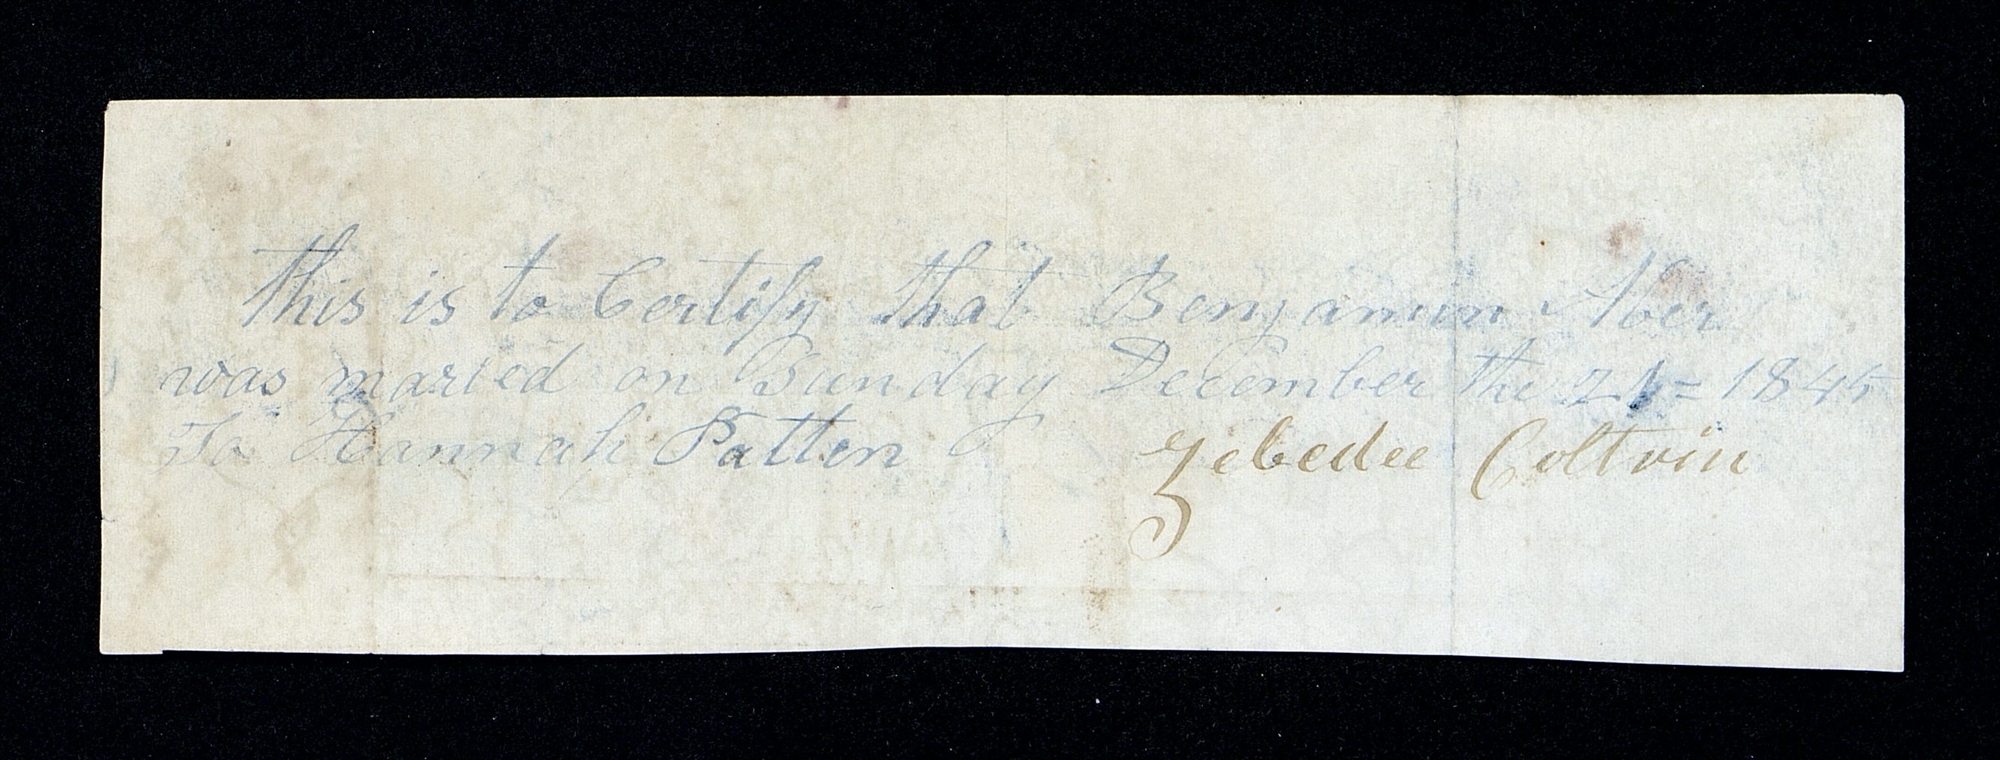 this is to Certify that Benjamin Aber
was maried on Sunday December the 21 = 1845
To Hannah Patten
Zebedee Coltrin